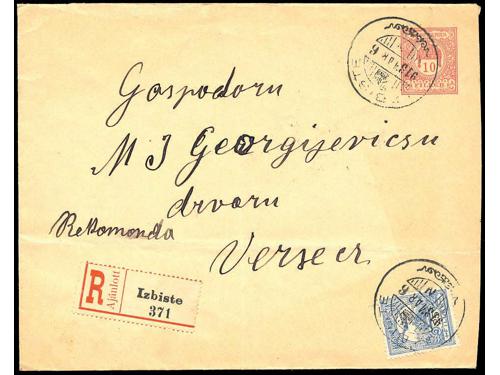 10
Gospodoru
M J Georgijevicsu
drvaru
Rekomanda
Versecz
R
Ajánlott
Izbiste
371